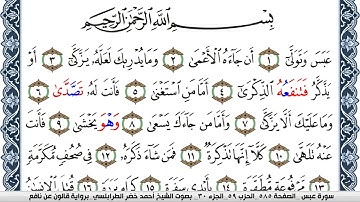 بِسْمِ اللَّهِ الرَّحْمَٰنِ الرَّحِيمِ
عَبَسَ وَتَوَلَّىٰ ١ أَن جَاءَهُ الْأَعْمَىٰ ٢ وَمَا يُدْرِيكَ لَعَلَّهُ يَزَّكَّىٰ ٣ أَوْ
يَذَّكَّرُ فَتَنفَعُهُ الذِّكْرَىٰ ٤ أَمَّا مَنِ اسْتَغْنَىٰ ٥ فَأَنتَ لَهُ تَصَّدَّىٰ ٦
وَمَا عَلَيْكَ أَلَّا يَزَّكَّىٰ ٧ وَأَمَّا مَن جَاءَكَ يَسْعَىٰ ٨ وَهْوَ يَخْشَىٰ ٩ فَأَنتَ
عَنْهُ تَلَهَّىٰ ١٠ كَلَّا إِنَّهَا تَذْكِرَةٌ ١١ فَمَن شَاءَ ذَكَرَهُ ١٢ فِي صُحُفٍ مُّكَرَّمَةٍ
١٣ مَّرْفُوعَةٍ مُّطَهَّرَةٍ ١٤ بِأَيْدِي سَفَرَةٍ ١٥
سورة عبس الصفحة ٥٨٥ الحزب ٥٩ الجزء ٣٠ بصوت الشيخ أحمد خضر الطرابلسي برواية قالون عن نافع